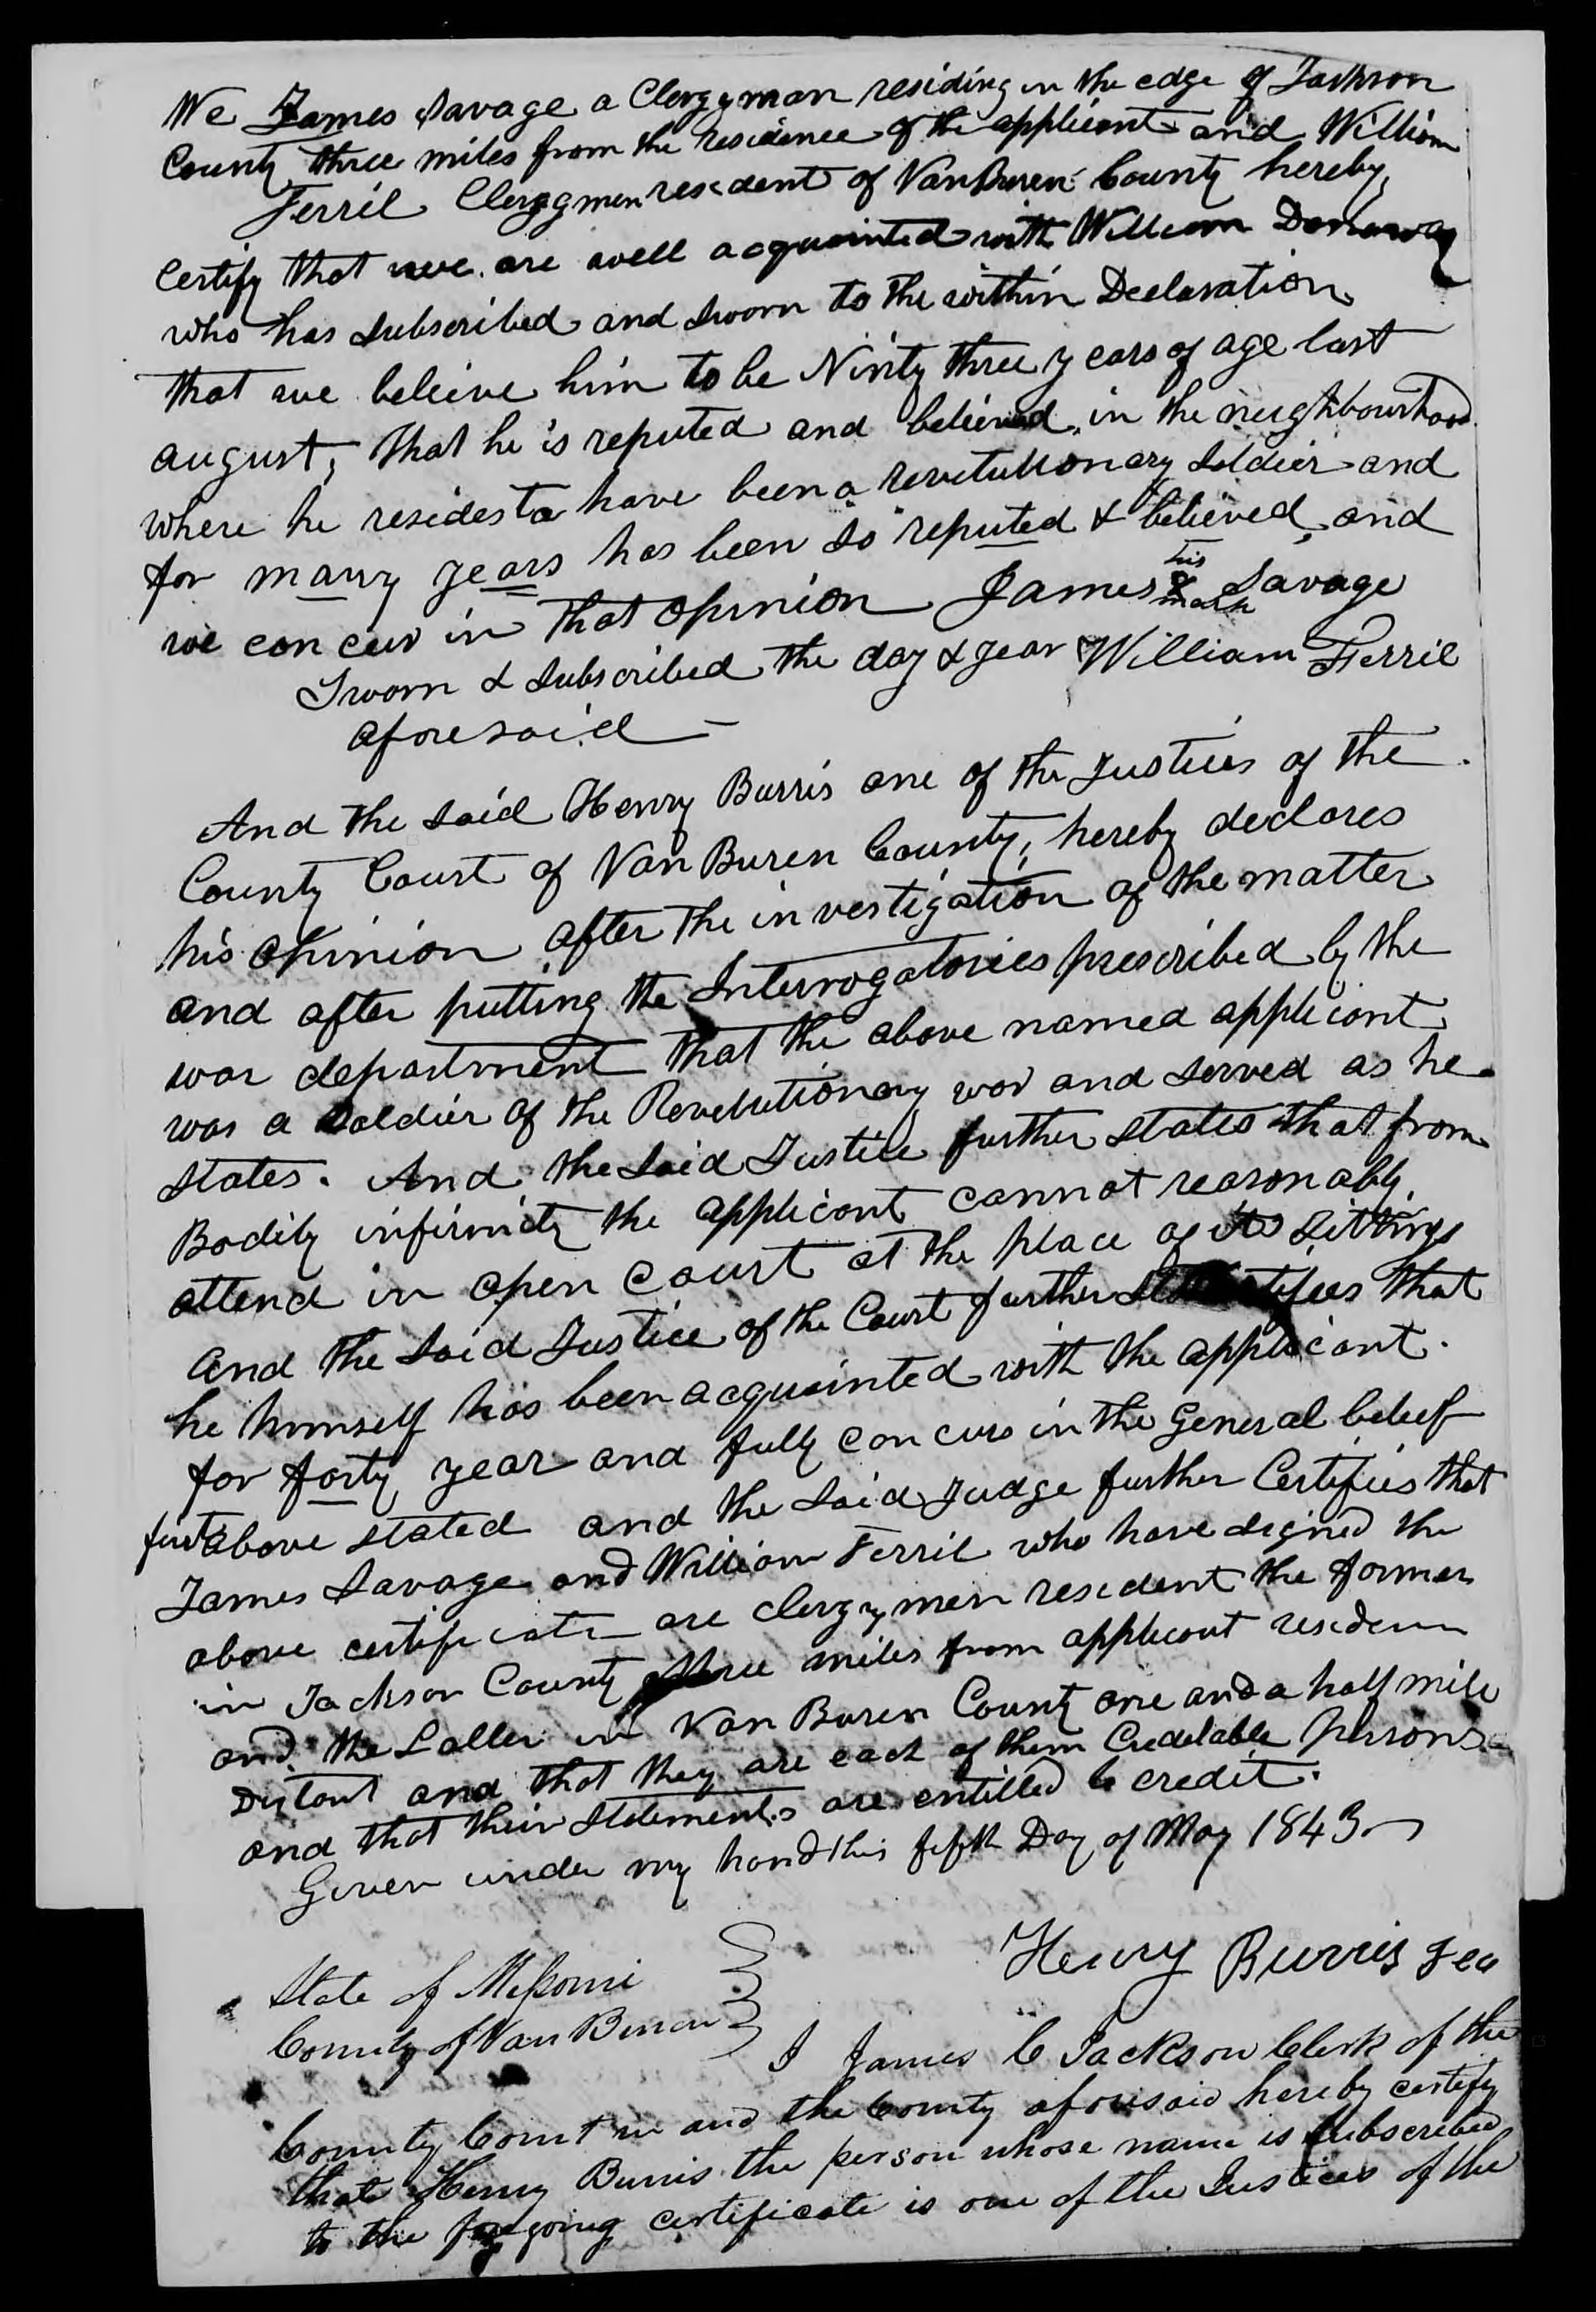 We James Savage a Clergyman residing in the edge of Jackson
County three miles from the residence of the applicant and William
Ferril Clergymen resident of VanBuren County hereby
Certify that we are well acquainted with William
who has subscribed and sworn to the within Declaration
that we beleive him to be Ninty three years of age last
august, that he is reputed and believed in the neighbourhood
where he resides to have been a revolutionary soldier and
for many years has been so reputed & believed, and
we concur in that opinion James his X mark Savage
Sworn & subscribed the day & year William Ferril
aforesaid —
And the said Henry Burris one of the Justices of the
County Court of Van Buren County, hereby declares
his opinion after the investigation of the matter
and after putting the Interrogatories prescribed by the
war department that the above named applicant
was a soldier of the Revolutionary war and served as he
states. And the said Justice further states that from
Bodily infirmity the applicant cannot reasonably
attend in open court at the place of its sittings
And the said Justice of the Court further that
he himself has been acquainted with the applicant
for forty year and fully concurs in the General belief
first above stated and the said Judge further Certifies that
James Savage and William Ferril who have signed the
above certificate are clergymen resident the former
in Jackson County three miles from applicant residence
and the Latter in Van Buren County one and a half mile
Distant and that they are each of them Credetable persons
and that their statements are entitled to credit.
Given under my hand this fifth Day of May 1843
Henry Burris
State of Missouri
County of Van Buren
I James C Jackson Clerk of the
County Court in and the County aforesaid hereby certify
that Henry Burris the person whose name is subscribed
to the foregoing certificate is one of the Justices of the